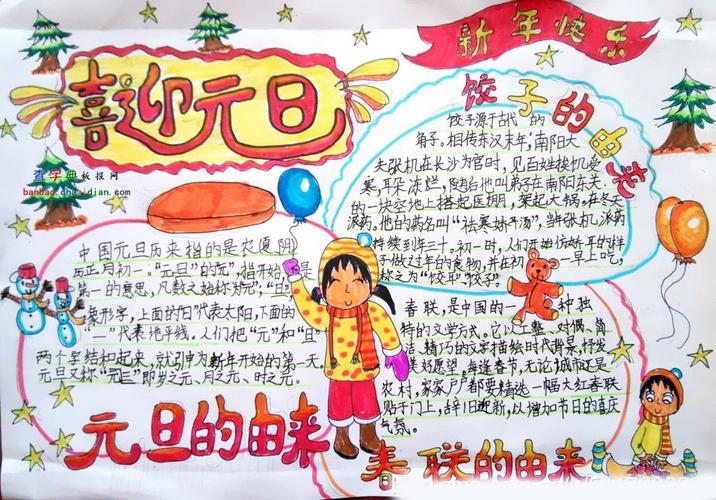 喜迎元旦
新年快乐
查字典板报网
banbao.chazidian.com
饺子的由来
饺子源于古代的
角子。相传东汉末年,南阳大
夫张机在长沙为官时,见百姓挨饥受
寒,耳朵冻烂,随后他叫弟子在南阳东关
的一块空地上搭起医棚,架起大锅。在冬天
派药。他的药名叫“祛寒娇耳汤”,当年张机派药
持续到年三十。初一时,人们开始仿娇耳的样
子做过年的食物,并在初一早上吃,
称之为“饺耳”“饺子”。
中国元旦历来指的是农(夏、阴)
历正月初一。“元旦”的“元”,指开始,是
第一的意思,凡数之始称为“元”;“旦”
象形字,上面的“日”代表太阳,下面的
“一”代表地平线。人们把“元”和“旦”
两个字结和起来,就引申为新年开始的第一天。
元旦又称“三元”即岁之元、月之元、时之元。
元旦的由来
春联,是中国的一种独
特的文学方式。它以工整、对偶、简
洁、精巧的文字描绘时代背景,抒发
美好愿望。每逢春节,无论城市还是
农村,家家户户都要精选一幅大红春联
贴于门上,辞旧迎新,以增加节日的喜庆
气氛。
春联的由来